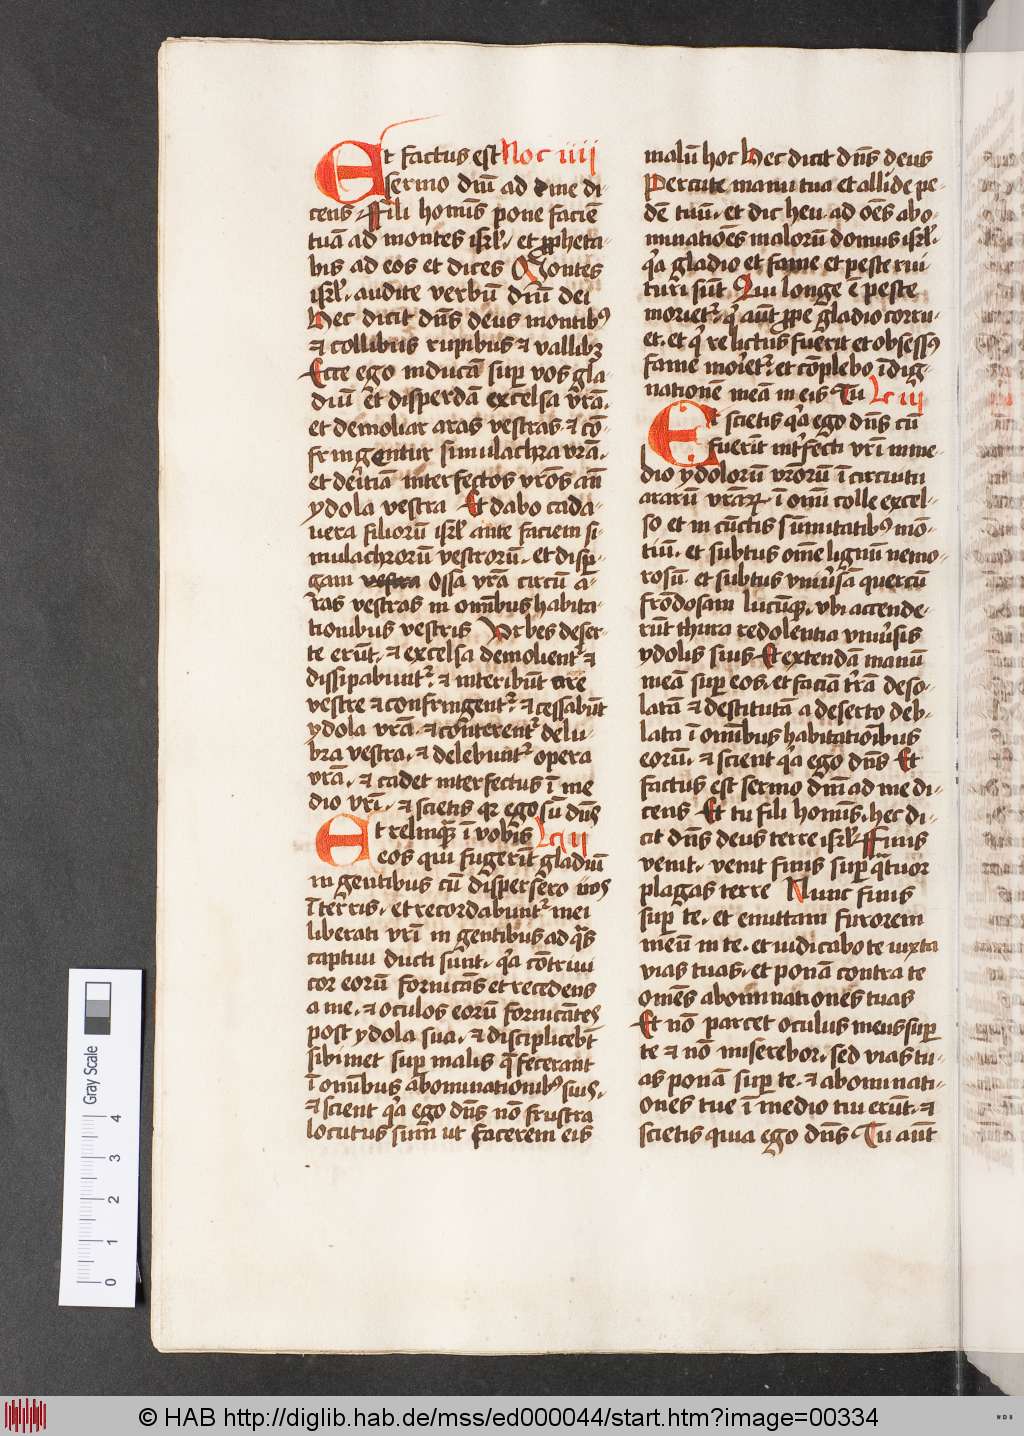 Et factus est Noc iiii
sermo dñi ad me di-
cens Fili homīs pone faciē
tuā ad montes isrl̄. et ꝓpheta-
bis ad eos et dices Montes
isrl̄. audite verbū dñi dei
Hec dicit dñs deus montibꝰ
⁊ collibus rupibus ⁊ vallibꝫ
Ecce ego inducā suꝑ vos gla-
diū et disperdā excelsa vr̄a.
et demoliar aras vestras. ⁊ cō-
fringentur simulachra vr̄a.
et deiciā interfectos vr̄os an̄
ydola vestra Et dabo cada-
uera filiorū isrl̄ ante faciem si-
mulachrorū vestrorū. et disp̄-
gam ossa vr̄a circū a-
ras vestras in om̄ibus habita-
tionibus vestris Vrbes deser-
te erūt. ⁊ excelsa demolient᷑ ⁊
dissipabunt᷑ ⁊ interibūt are
vestre ⁊ confringent᷑ ⁊ cessabūt
ydola vr̄a. ⁊ cōterent᷑ delu-
bra vestra. ⁊ delebunt᷑ opera
vr̄a. ⁊ cadet interfectus ī me
dio vr̄i. ⁊ scietis qr ego sū dñs
Et relinquā ī vobis Lc ii
eos qui fugerīt gladiū
in gentibus cū dispersero vos
ī terris. et recordabunt᷑ mei
liberati vr̄i in gentibus ad qͣs
captiui ducti sūnt. qͥa cōtriui
cor eorū fornicās et recedens
a me. ⁊ oculos eorū fornicātes
post ydola sua. ⁊ displicebt̄
sibimet suꝑ malis q̄ fecerant
ī om̄ibus abominationibꝰ suis.
⁊ scient qͥa ego dñs nō frustra
locutus sum̄ ut facerem eis
malū hoc Hec dicit dñs deus
Percute manu tua et allide pe-
dē tuū. et dic heu ad oēs abo-
minatiōes malorū domus isrl̄.
qͥa gladio et fame et peste rui
turi sūt Qui longe ē peste
moriet᷑. qͥ aūt ꝓpe gladio corru-
et. et qͥ relictus fuerit et obsessꝰ
fame moriet᷑. et cōplebo īdig-
nationē meā in eis Tu Lc iii
Et scietis qͥa ego dñs cū
fuerīt int̄fecti vr̄i in me-
dio ydolorū vr̄orū ī circuitu
ararū vr̄arꝝ ī om̄i colle excel-
so et in cūctis sūmitatibꝰ mō-
tiū. et subtus om̄e lignū nemo-
rosū. et subtus vniūsā quercū
frondosam locū vbi accende-
rūt thura redolentia vniūsis
ydolis suis Et extendā manū
meā suꝑ eos. et faciā tr̄ā deso-
latā ⁊ destitutā a deserto deb-
lata ī om̄ibus habitatiōibus
eorū. ⁊ scient qͥa ego dñs Et
factus est sermo dñi ad me di-
cens Et tu fili homīs. hec di-
cit dñs deus terre isrl̄ Finis
venit. venit finis suꝑ qͣtuor
plagas terre Nunc finis
suꝑ te. et emittam furorem
meū in te. et iudicabo te iuxta
vias tuas. et ponā contra te
omēs abominationes tuas
Et nō parcet oculus meus suꝑ
te ⁊ nō miserebor. sed vias tu-
as ponā suꝑ te. ⁊ abominati-
ones tue ī medio tui erūt. ⁊
scietis quia ego dñs Tu aūt
Gray Scale
0 1 2 3 4
© HAB http://diglib.hab.de/mss/ed000044/start.htm?image=00334